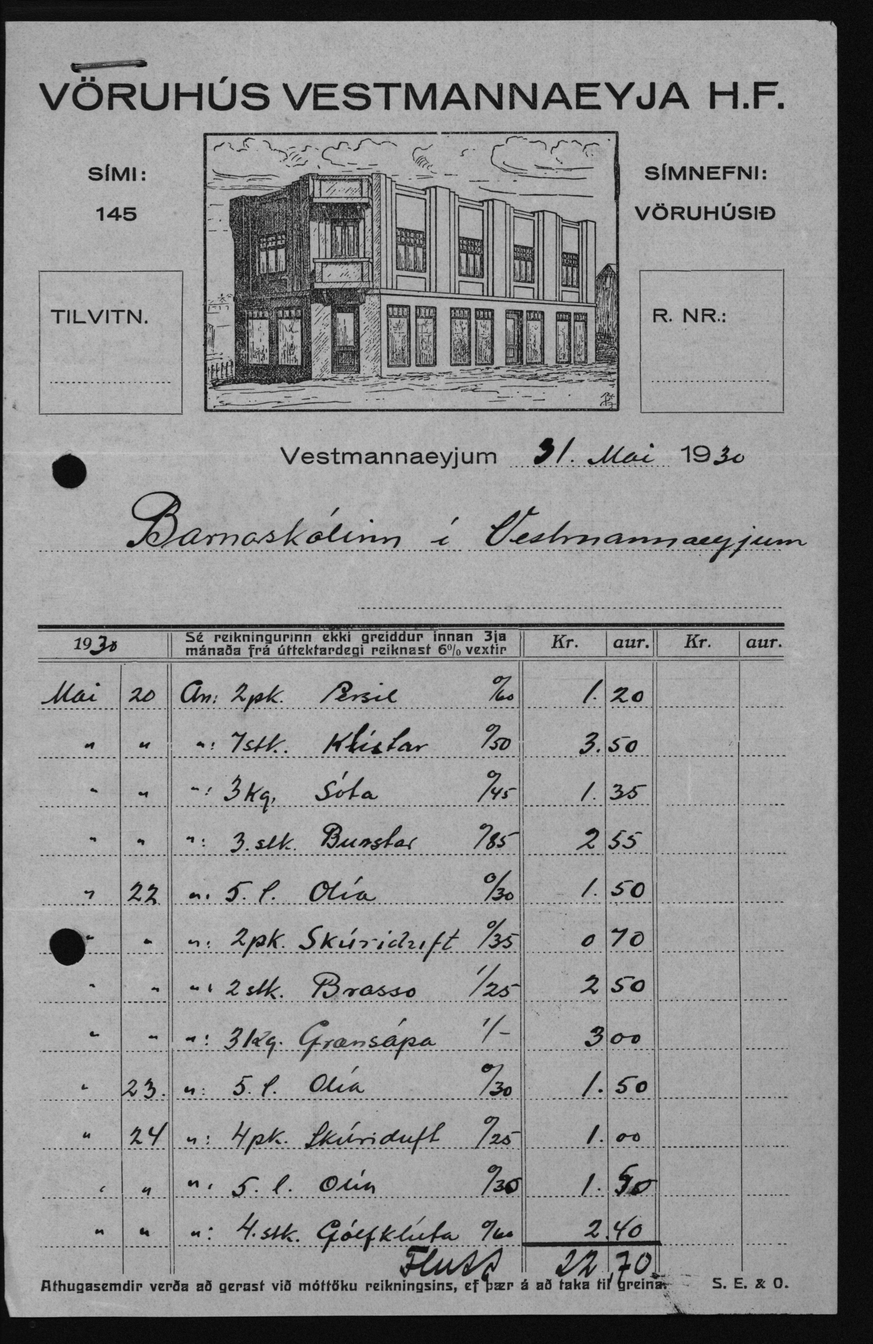 VÖRUHÚS VESTMANNAEYJA H.F.
SÍMI:
145
SÍMNEFNI:
VÖRUHÚSIÐ
TILVITN.
R. NR.:
Vestmannaeyjum 31. Mai 1930
Barnaskólinn í Vestmannaeyjum
1930 Sé reikningurinn ekki greiddur innan 3ja mánaða frá úttektardegi reiknast 6% vextir Kr. aur. Kr. aur.
Mai 20 An: 2 pk. Persil 0/60 1. 20
" " ": 7 stk. Klístar 0/50 3. 50
" " ": 3 Kg. Sóta 0/45 1. 35
" " ": 3. stk. Burstar 0/85 2 55
" 22 ": 5. l. Olía 0/30 1. 50
" " ": 2 pk. Skúriduft 0/35 0 70
" " ": 2 stk. Brasso 1/25 2 50
" " ": 3 Kg. Grænsápa 1/- 3 00
" 23. ": 5. l. Olía 0/30 1. 50
" 24 ": 4 pk. Skúriduft 0/25 1. 00
" " ": 5. l. Olía 0/30 1. 50
" " ": 4. stk. Gólfklúta 0/60 2. 40
Flutt 22,70
Athugasemdir verða að gerast við móttöku reikningsins, ef þær á að taka til greina. S. E. & O.